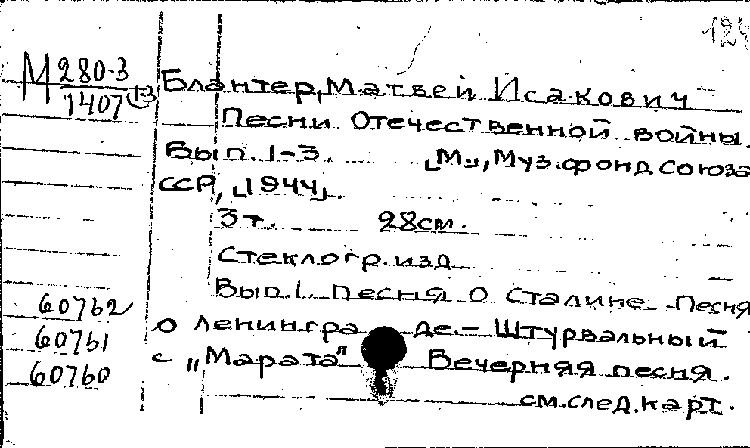 124
М 280-3
1407 (13
Блантер, Матвей Исакович
Песни Отечественной войны.
Вып. 1-3. [М.], Муз. фонд Союза
ССР, [1944].
3 т. 28 см.
Стеклогр. изд.
Вып.1. Песня о Сталине.-Песня
о Ленинграде.-Штурвальный
с "Марата" Вечерняя песня.
см. след. карт.
60762
60761
60760